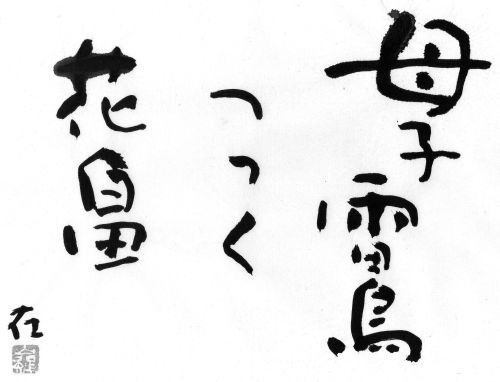 母子雷鳥
つつく
花畠
在